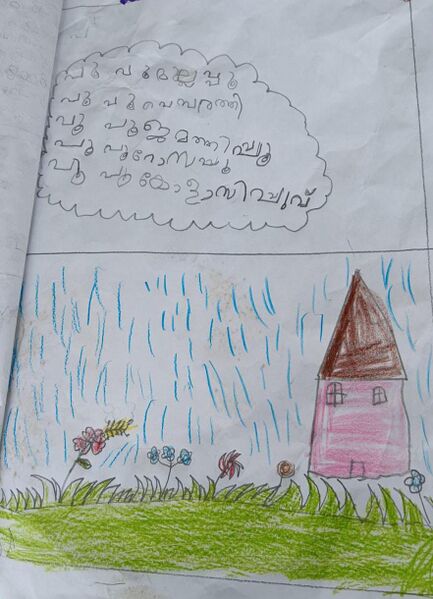 പൂ പൂമുല്ലപ്പൂ
പൂ പൂ ചെമ്പരത്തി
പൂ പൂജമന്തിപ്പൂ
പൂ പൂറോസപ്പൂ
പൂ പൂകോളാമ്പിപ്പുവ്